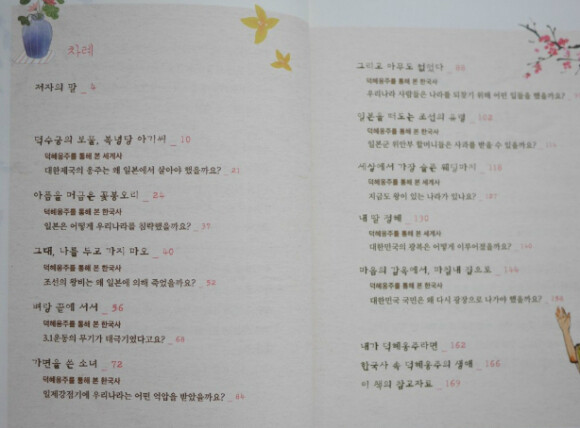 차례
저자의 말 _ 4
덕수궁의 보물, 복녕당 아기씨 _ 10
덕혜옹주를 통해 본 세계사
대한제국의 옹주는 왜 일본에서 살아야 했을까요? _ 21
아픔을 머금은 꽃봉오리 _ 24
덕혜옹주를 통해 본 한국사
일본은 어떻게 우리나라를 침략했을까요? _ 35
그대, 나를 두고 가지 마오 _ 40
덕혜옹주를 통해 본 한국사
조선의 왕비는 왜 일본에 의해 죽었을까요? _ 52
벼랑 끝에 서서 _ 56
덕혜옹주를 통해 본 한국사
3.1운동의 무기가 태극기였다고요? _ 68
가면을 쓴 소녀 _ 72
덕혜옹주를 통해 본 한국사
일제강점기에 우리나라는 어떤 억압을 받았을까요? _ 84
그리고 아무도 없었다 _ 88
덕혜옹주를 통해 본 한국사
우리나라 사람들은 나라를 되찾기 위해 어떤 일들을 했을까요? _
일본을 떠도는 조선의 유령 _ 102
덕혜옹주를 통해 본 한국사
일본군 위안부 할머니들은 사과를 받을 수 있을까요? _ 114
세상에서 가장 슬픈 웨딩마치 _ 118
덕혜옹주를 통해 본 세계사
지금도 왕이 있는 나라가 있나요? _ 127
내 딸 정혜 _ 130
덕혜옹주를 통해 본 세계사
대한민국의 광복은 어떻게 이루어졌을까요? _
마음의 감옥에서, 마침내 집으로 _ 144
덕혜옹주를 통해 본 한국사
대한민국 국민은 왜 다시 광장으로 나가야 했을까요? _
내가 덕혜옹주라면 _ 162
한국사 속 덕혜옹주의 생애 _ 166
이 책의 참고자료 _ 169